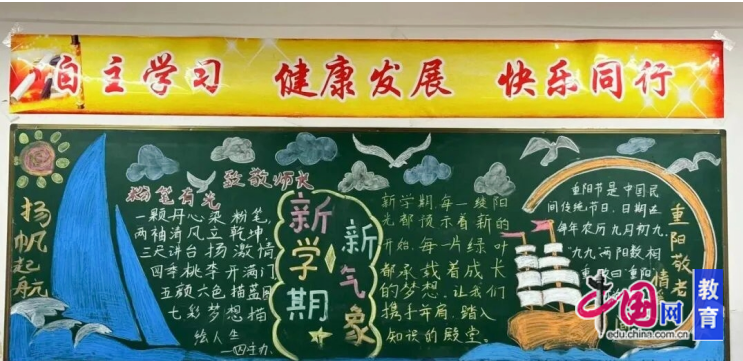 自主学习 健康发展 快乐同行
扬帆起航
粉笔有光
致敬师长
一颗丹心染粉笔,
两袖清风立乾坤,
三尺讲台扬激情
四季桃李开满门
五颜六色描蓝图
七彩梦想描
绘人生
新学期
新气象
新学期,每一缕阳
光都预示着新的
开始,每一片绿叶
都承载着成长
的梦想,让我们
携手并肩,踏入
知识的殿堂。
重阳节是中国民
间传统节日、日期在
每年农历九月初九、
"九九"两阳数相
重阳敬老
情
中国网
edu.china.com.cn
教育